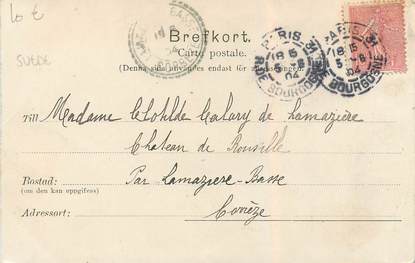 10 €
SUEDE
Brefkort.
Carte postale.
(Denna sida användes endast för adresseringen.)
PARIS 34
18 15
5 - 8
04
R. DE BOURGOGNE
PARIS 34
18 15
5 - 8
04
R. DE BOURGOGNE
Till Madame Clotilde Calary de Lamazière
Chateau de Rouville
Bostad: Par Lamazière-Basse
(om den kan uppgifvas)
Adressort: Corrèze